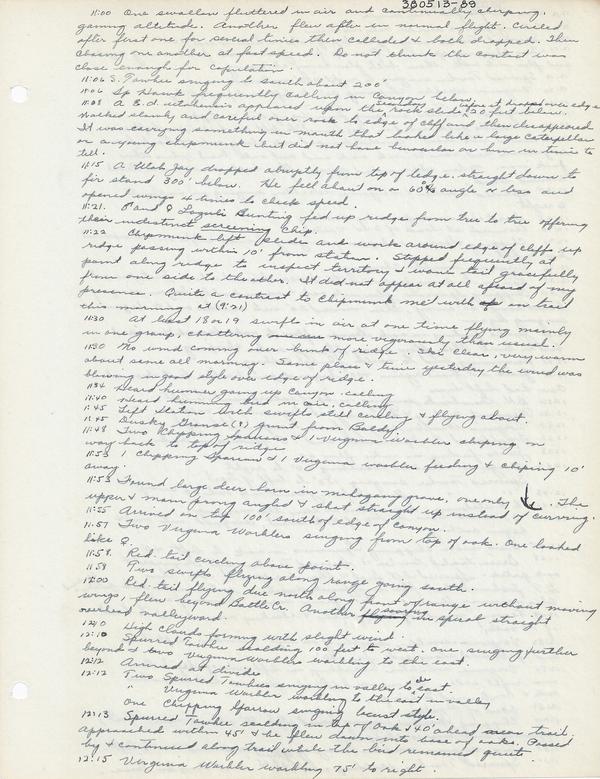 380513-89
11:00 One swallow fluttered in air and continually chirping,
gaining altitude. Another flew after in normal flight. Circled
after first one for several times then collided & both dropped. Then
chasing one another at fast speed. Do not think the contact was
close enough for copulation.
11:06 S. Towhee singing to south about 200'
11:06 Sp Hawk frequently calling in Canyon below.
11:08 A E.d. utahensis appeared upon the rock slide 20 feet below.
Walked slowly and careful over rock to edge of cliff and then disappeared
It was carrying something in mouth that looked like a large caterpillar
or a young chipmunk but did not have binocular on him in time to
tell.
11:15 A Utah Jay dropped abruptly from top of ledge, straight down to
fir stand 300' below. He fell about on a 60° angle or less and
opened wings 4 times to check speed.
11:21. ♂ and ♀ Lazuli Bunting fed up ridge from tree to tree offering
their indistinct screening chip.
11:22 Chipmunk left slides and work around edge of cliffs up
ridge passing within 10' from station. Stopped frequently at
point along ridge to inspect territory & wave tail gracefully
from one side to the other. It did not appear at all afraid of my
presence. Quite a contrast to Chipmunk met with on trail
this morning at (9:21)
11:30 At least 18 or 19 swifts in air at one time flying mainly
in one group, chattering more vigorously than usual.
11:30 No wind coming over brink of ridge. Sky clear, very warm
about same all morning. Same place & time yesterday the wind was
blowing in good style over edge of ridge.
11:34 Heard hummer going up Canyon calling
11:40 Heard humming bird in air, calling
11:45 Left Station with swifts still calling & flying about.
11:45 Dusky Grouse (?) grunt from Baldy.
11:48 Two Chipping Sparrows & 1 Virginia warbler chiping on
way back to top of ridge
11:53 1 Chipping Sparrow & 1 Virginia warbler feeding & chiping 10'
away.
11:53 Found large deer horn in mahogany grove, one only. The
upper & main prong angled & shot straight up instead of curving.
11:55 Arrived on top 100' south of edge of Canyon.
11:57 Two Virginia Warblers singing from top of oak. One looked
like ♀.
11:58. Red-tail circling above point.
11:59 Two swifts flying along range going south.
12:00 Red-tail flying due north along front of range without moving
wings, flew beyond Battle Cr. Another soaring in spiral straight
overhead valleyward.
12:10 High clouds forming with slight wind.
12:10 Spurred Towhee scolding 100 feet to west. one singing further
beyond & two Virginia Warblers warbling to the east.
12:12 Arrived at divide
12:12 Two Spurred Towhees singing in valley to east.
" Virginia Warbler warbling to the east in valley
One Chipping Sparrow singing locust style.
12:13 Spurred Towhee scolding in top of oak 140' ahead near trail.
Approached within 45' & he flew down into base of oaks. Passed
by & continued along trail while the bird remained quiet.
12:15 Virginia Warbler warbling 75' to right.